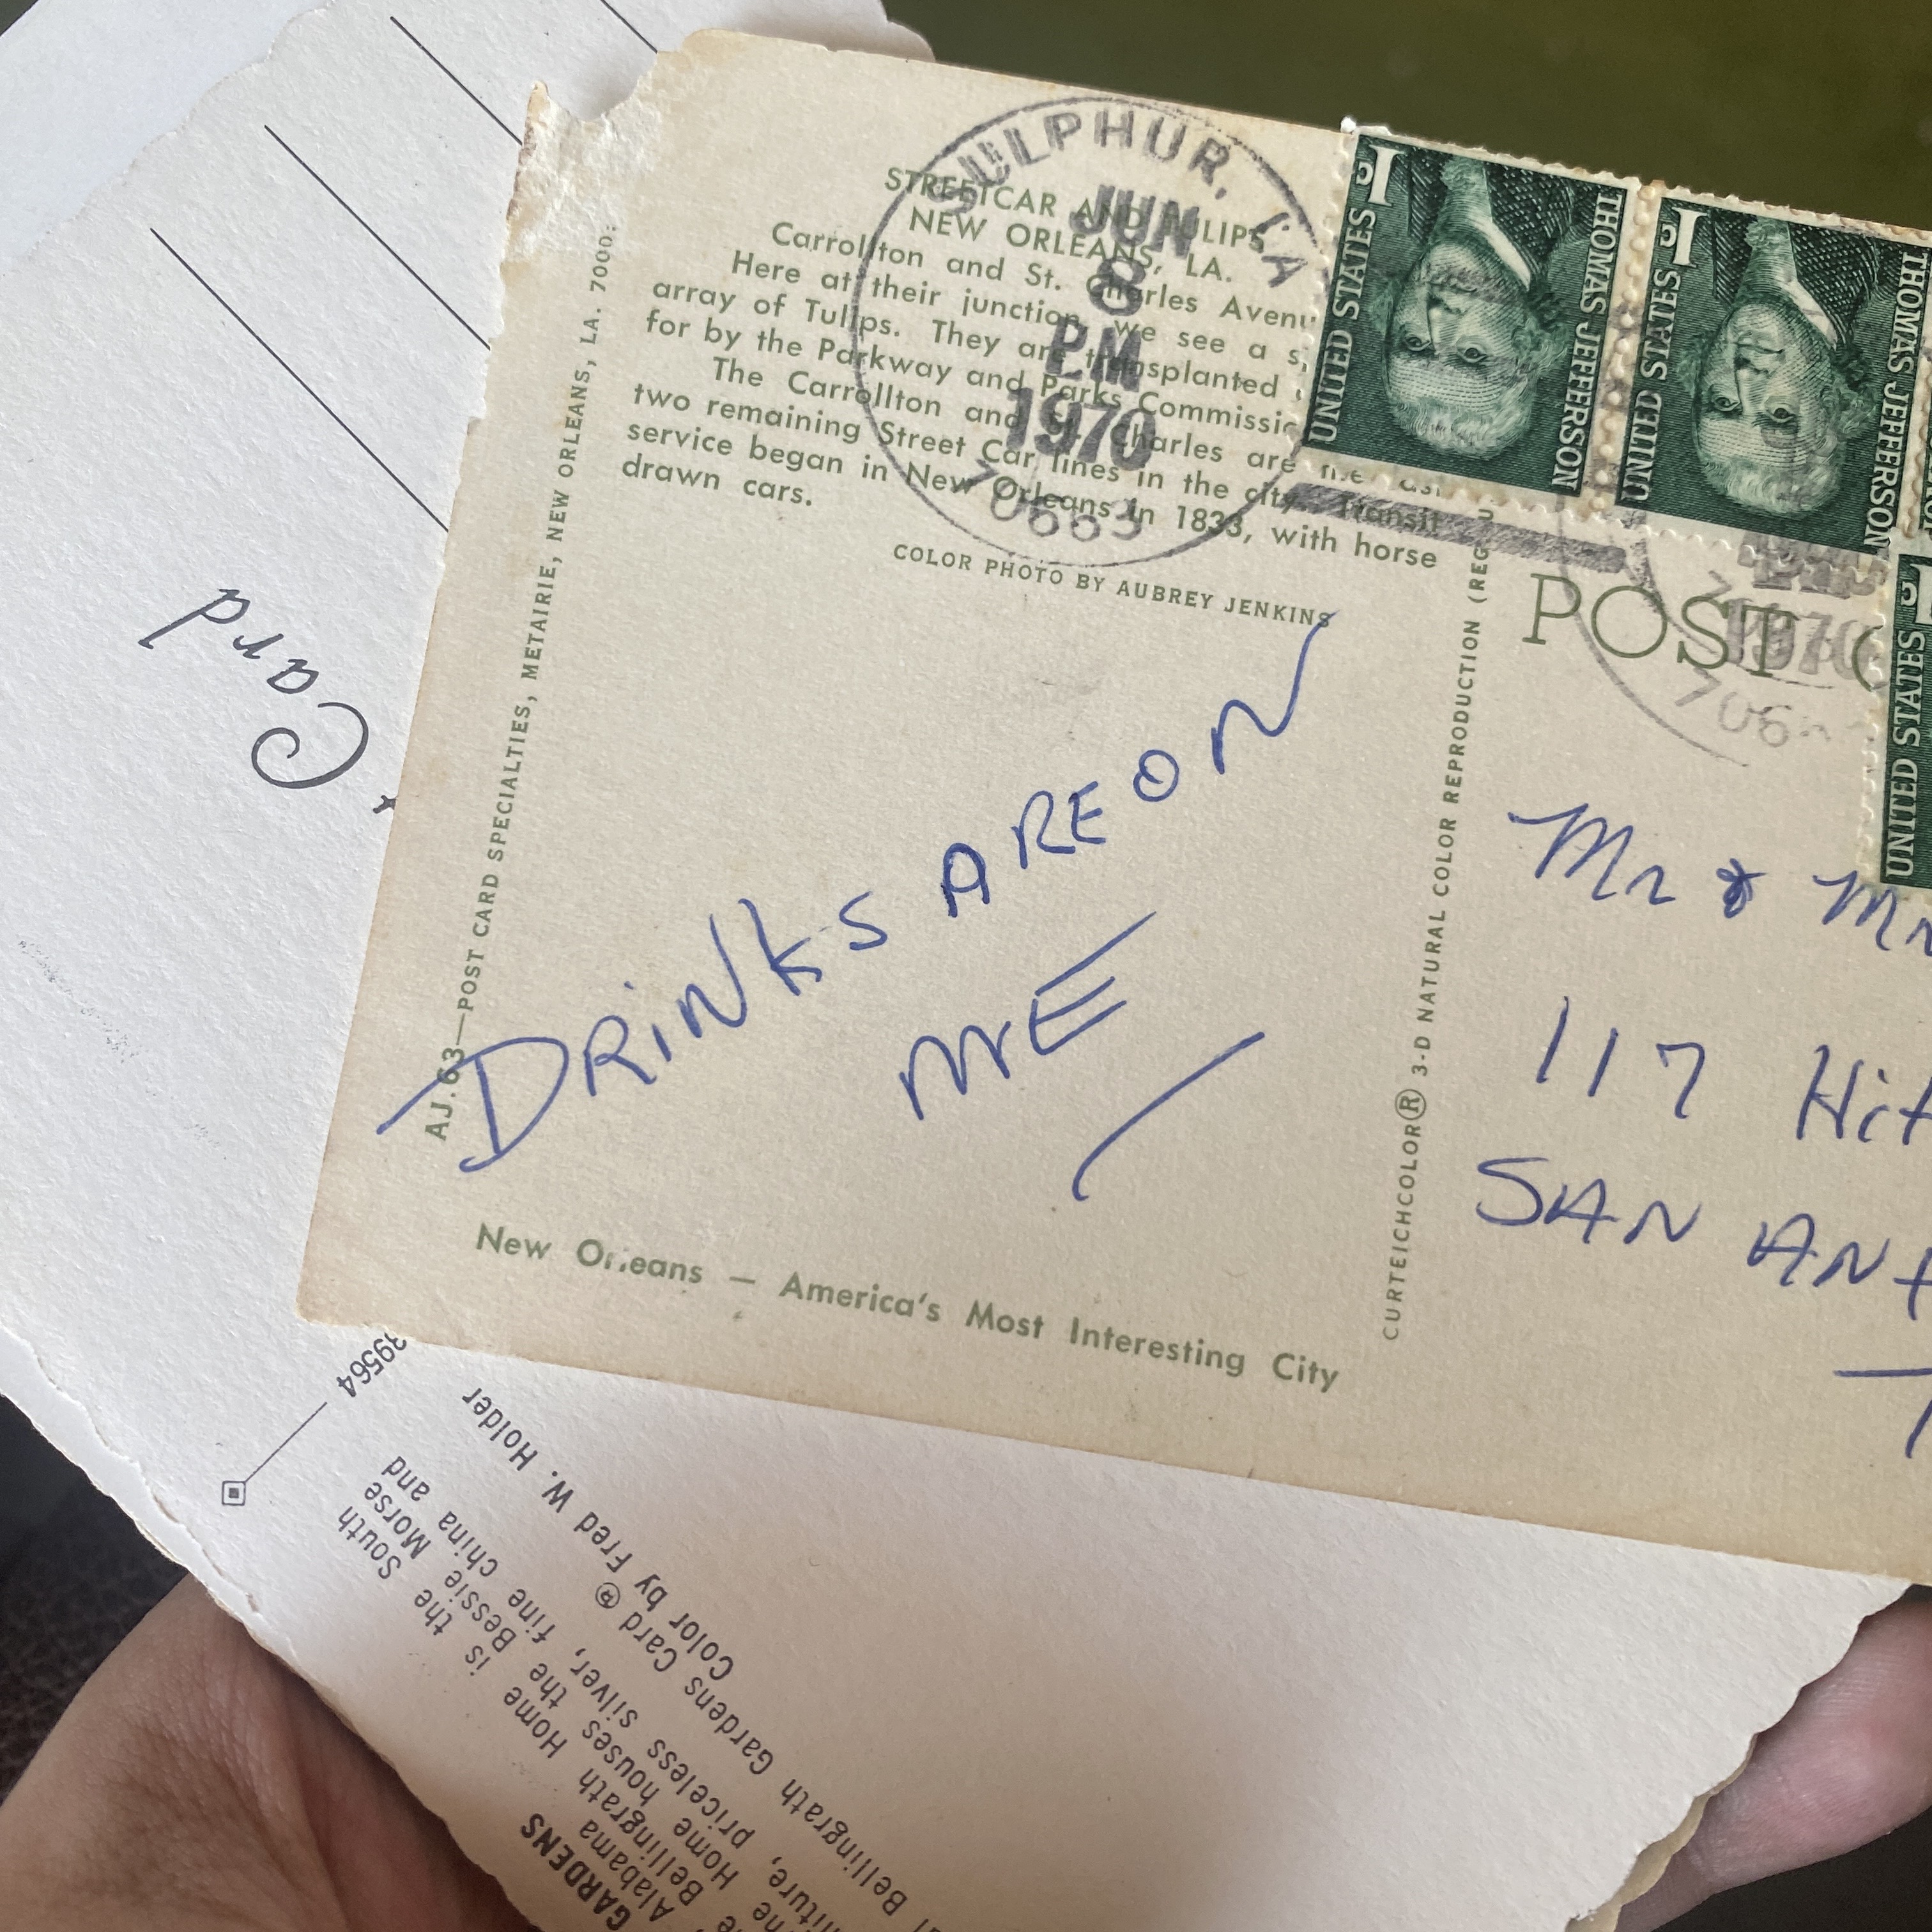 SULPHUR, LA
JUN
8
PM
1970
70663
STREETCAR AND TULIPS
NEW ORLEANS, LA.
Carrollton and St. Charles Avenu
Here at their junction, we see a s
array of Tulips. They are transplanted
for by the Parkway and Parks Commissio
The Carrollton and St. Charles are the last
two remaining Street Car lines in the city. Transit
service began in New Orleans in 1833, with horse
drawn cars.
COLOR PHOTO BY AUBREY JENKINS
AJ.63—POST CARD SPECIALTIES, METAIRIE, NEW ORLEANS, LA. 7000
DRINKS ARE ON
ME
New Orleans — America's Most Interesting City
CURTEICHCOLOR® 3-D NATURAL COLOR REPRODUCTION (REG U
UNITED STATES
1¢
THOMAS JEFFERSON
UNITED STATES
1¢
THOMAS JEFFERSON
UNITED STATES
1970
POST C
Mr & Mr
117 Hit
SAN ANt
Card
39564
GARDENS
Alabama
Bellingrath Home is the South
Home houses the Bessie Morse
priceless silver, fine china and
Bellingrath Gardens Card ®
Color by Fred W. Holder